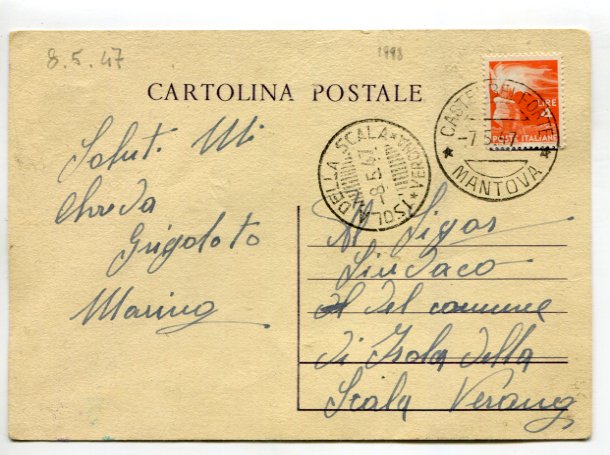 8.5.47
1998
CARTOLINA POSTALE
LIRE
POSTE ITALIANE
CASTELBELFORTE
-7.5.47
MANTOVA
ISOLA DELLA SCALA
-8.5.47
VERONA
Saluti Mli
Chreda
Grigoloto
Marino
Al Sigor
Sindaco
del comune
di Isola della
Scala Verona